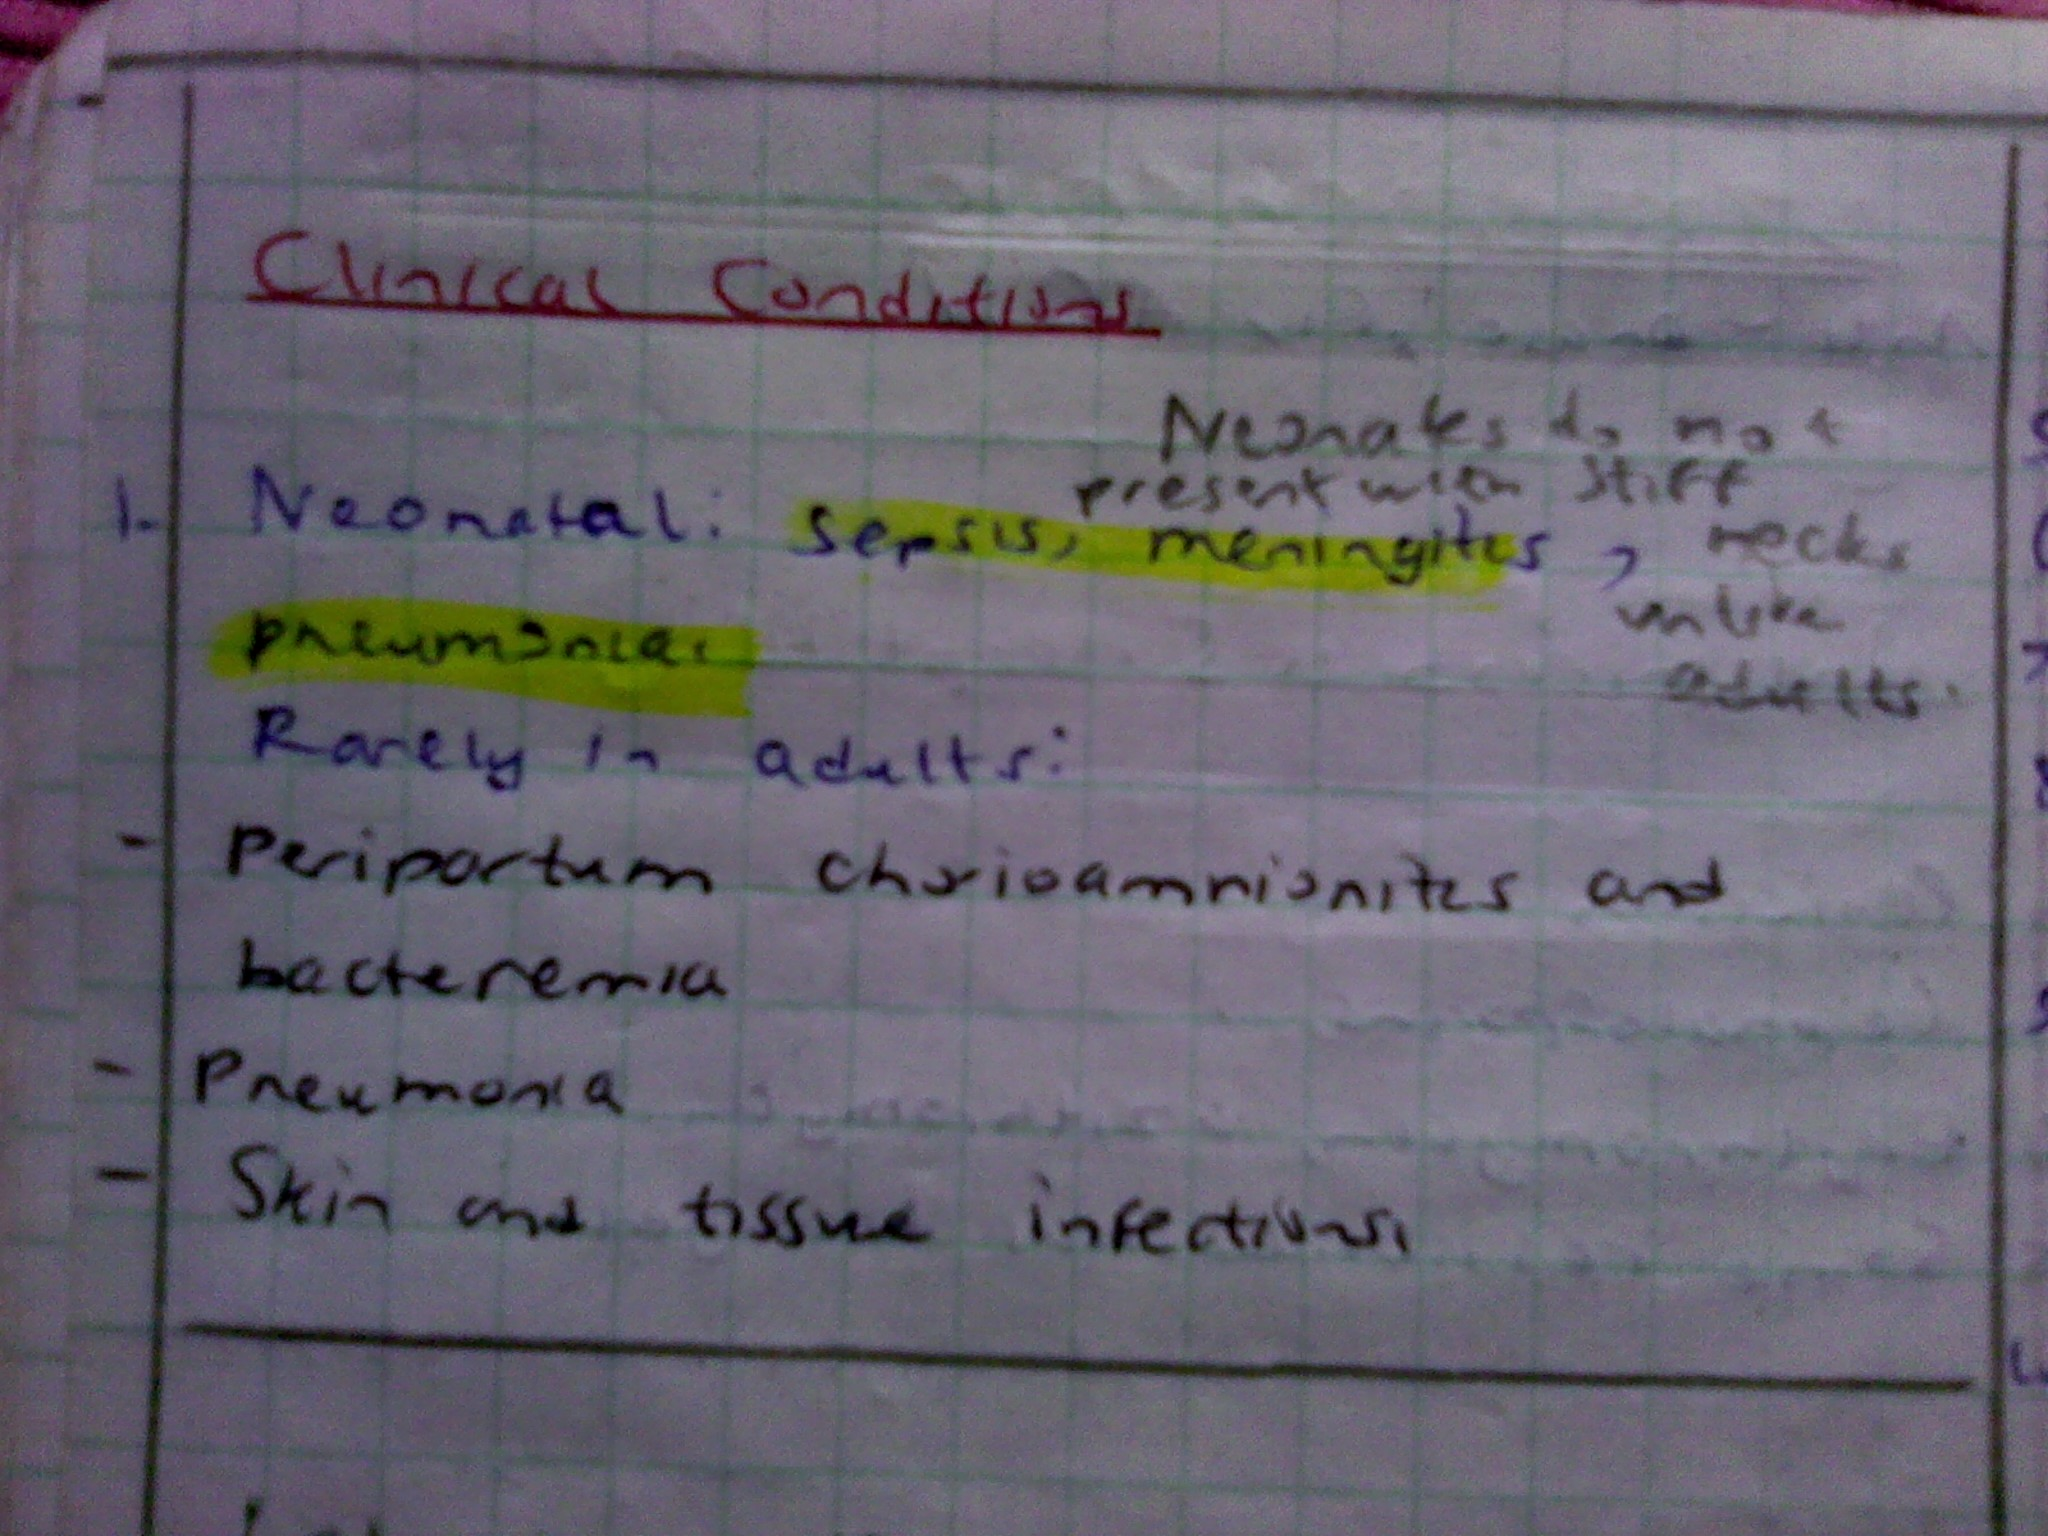 Clinical Conditions
Neonates do not
present with stiff
necks
unlike
adults.
1. Neonatal: sepsis, meningitis,
pneumonia.
Rarely in adults:
- Peripartum chorioamnionitis and
bacteremia
- Pneumonia
- Skin and tissue infections.